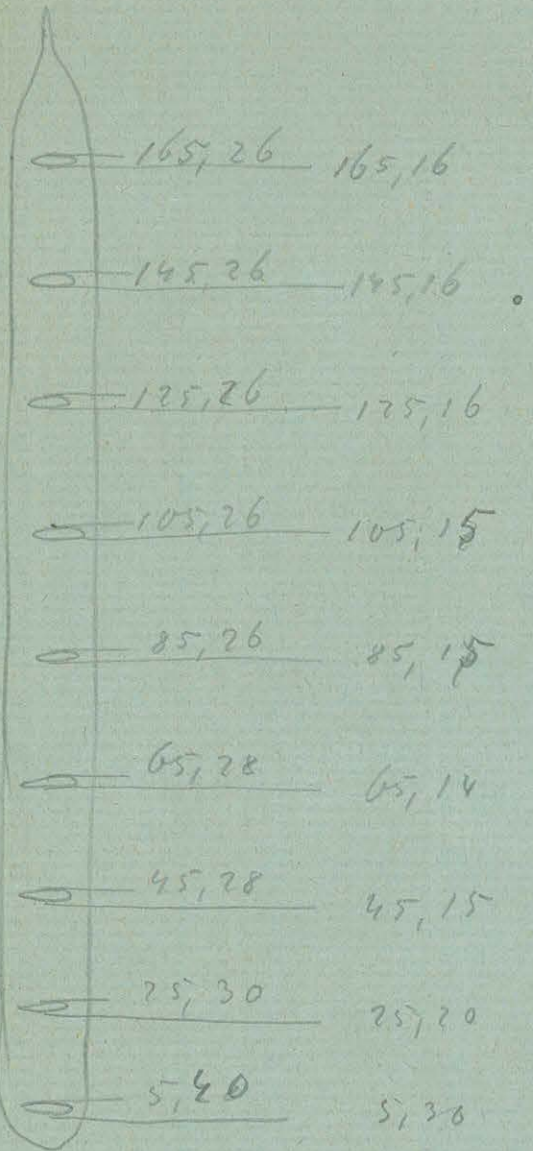 165,26 165,16
145,26 145,16
125,26 125,16
105,26 105,15
85,26 85,15
65,28 65,14
45,28 45,15
25,30 25,20
5,40 5,30